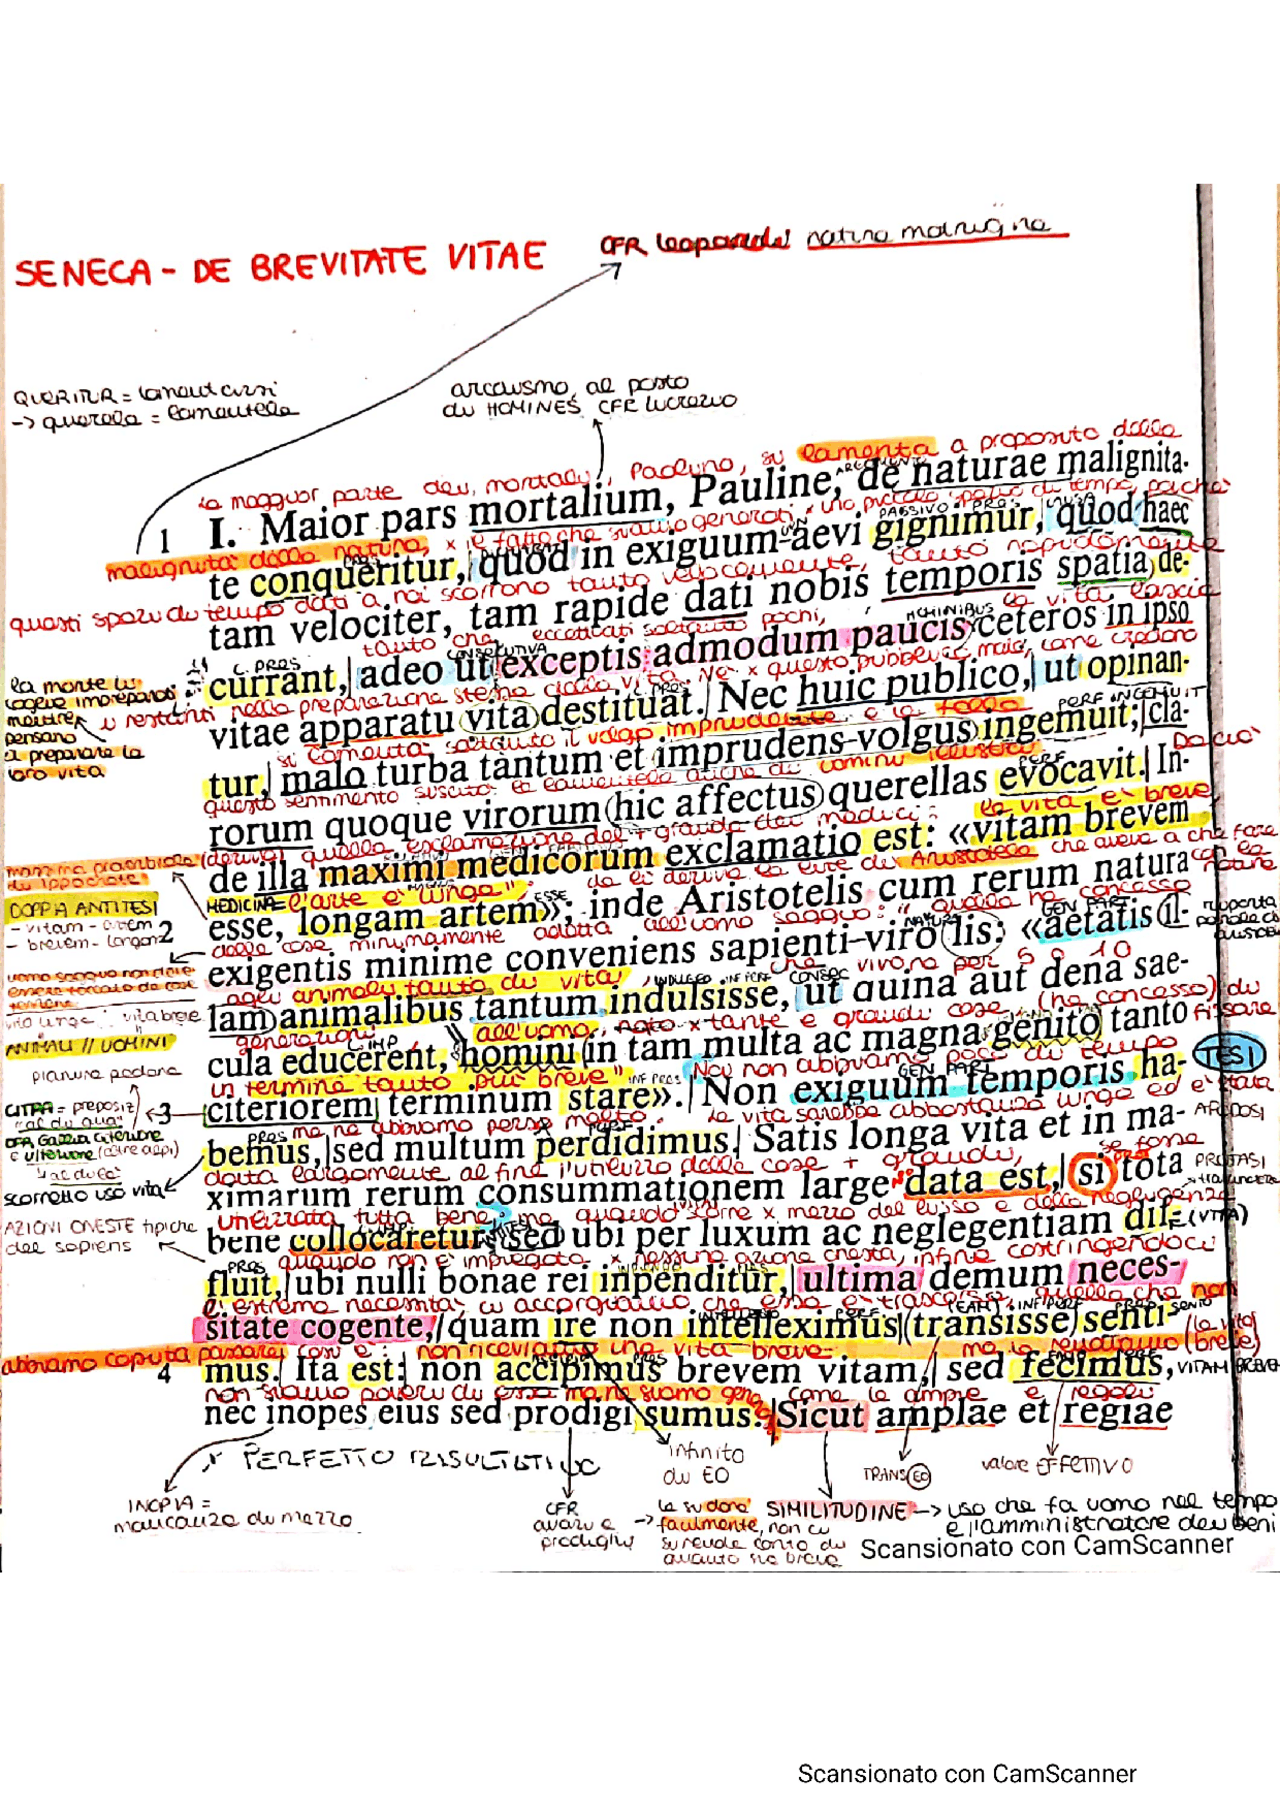 SENECA - DE BREVITATE VITAE
CFR leopardi natura matrigna
QUERITUR = lamentarsi
→ querela = lamentela
arcaismo al posto
di HOMINES CFR Lucrezio
la maggior parte dei mortali, Paolino, si lamenta a proposito della
1 I. Maior pars mortalium, Pauline, de naturae malignita-
malignità della natura, x il fatto che siamo generati x uno piccolo spazio di tempo, poiché
te conqueritur, quod in exiguum aevi gignimur, quod haec
questi spazi di tempo dati a noi scorrono tanto velocemente, tanto rapidamente
tam velociter, tam rapide dati nobis temporis spatia de-
tanto che eccettuati soltanto pochi, la vita lascia
currant, adeo ut exceptis admodum paucis ceteros in ipso
i restanti nella preparazione stessa della vita. Né x questo pubblico male, come credono
vitae apparatu vita destituat. Nec huic publico, ut opinan-
la morte li
coglie impreparati
mentre
pensano
a preparare la
loro vita
si lamenta soltanto il volgo imprudente e la folla
tur, malo turba tantum et imprudens volgus ingemuit; cla-
questo sentimento suscitò la lamentela anche di uomini illustri
Da ciò
rorum quoque virorum hic affectus querellas evocavit. In-
(deriva) quella esclamazione del + grande dei medici: la vita è breve
de illa maximi medicorum exclamatio est: «vitam brevem
MEDICINA= l'arte è lunga"; da lì deriva la lite di Aristotele che aveva a che fare
esse, longam artem»; inde Aristotelis cum rerum natura
DOPPIA ANTITESI
- vitam - artem
- brevem - longam
2
delle cose minimamente adatta all'uomo saggio: "quella ha concesso
exigentis minime conveniens sapienti viro lis: «aetatis il-
agli animali tanto di vita, che vivono per 5 o 10
lam animalibus tantum indulsisse, ut quina aut dena sae-
vita lunga : vita breve
ANIMALI // UOMINI
generazioni, all'uomo, nato x tante e grandi cose (ha concesso) di
cula educerent, homini in tam multa ac magna genito tanto
fissare
un termine tanto più breve" Noi non abbiamo poco di tempo
citeriorem terminum stare». Non exiguum temporis ha-
TESI
pianura padana
CITRA = preposiz
"al di qua"
CFR Gallia citeriore
e ulteriore (oltre alpi)
"al di là"
3
ma ne abbiamo perso molto. la vita sarebbe abbastanza lunga ed è stata
bemus, sed multum perdidimus. Satis longa vita et in ma-
APODOSI
scorretto uso vita
data largamente al fine l'utilizzo delle cose + grandi, se fosse
ximarum rerum consummationem large data est, si tota
PROTASI
AZIONI ONESTE tipiche
del sapiens
utilizzata tutta bene; ma quando scorre x mezzo del lusso e della negligenza
bene collocaretur; sed ubi per luxum ac neglegentiam dif-
(VITA)
quando non è impiegata x nessuna azione onesta, infine costringendoci
fluit, ubi nulli bonae rei inpenditur, ultima demum neces-
l'estrema necessità ci accorgiamo che essa è trascorsa quella che non
sitate cogente, quam ire non intelleximus transisse senti-
abbiamo capito passare così è: non riceviamo una vita breve ma la rendiamo (breve)
(la vita)
4 mus. Ita est: non accipimus brevem vitam, sed fecimus,
VITAM BREVEM
non siamo poveri di essa ma ne siamo come le ampie e regali
nec inopes eius sed prodigi sumus. Sicut amplae et regiae
PERFETTO RISULTATIVO
infinito
di EO
TRANSEO
valore EFFETTIVO
INOPIA =
mancanza di mezzo
CFR
avari e
prodighi
→ la si dona
facilmente, non ci
si rende conto di
quanto sia breve
SIMILITUDINE → uso che fa uomo nel tempo
e l'amministratore dei beni
Scansionato con CamScanner
Scansionato con CamScanner